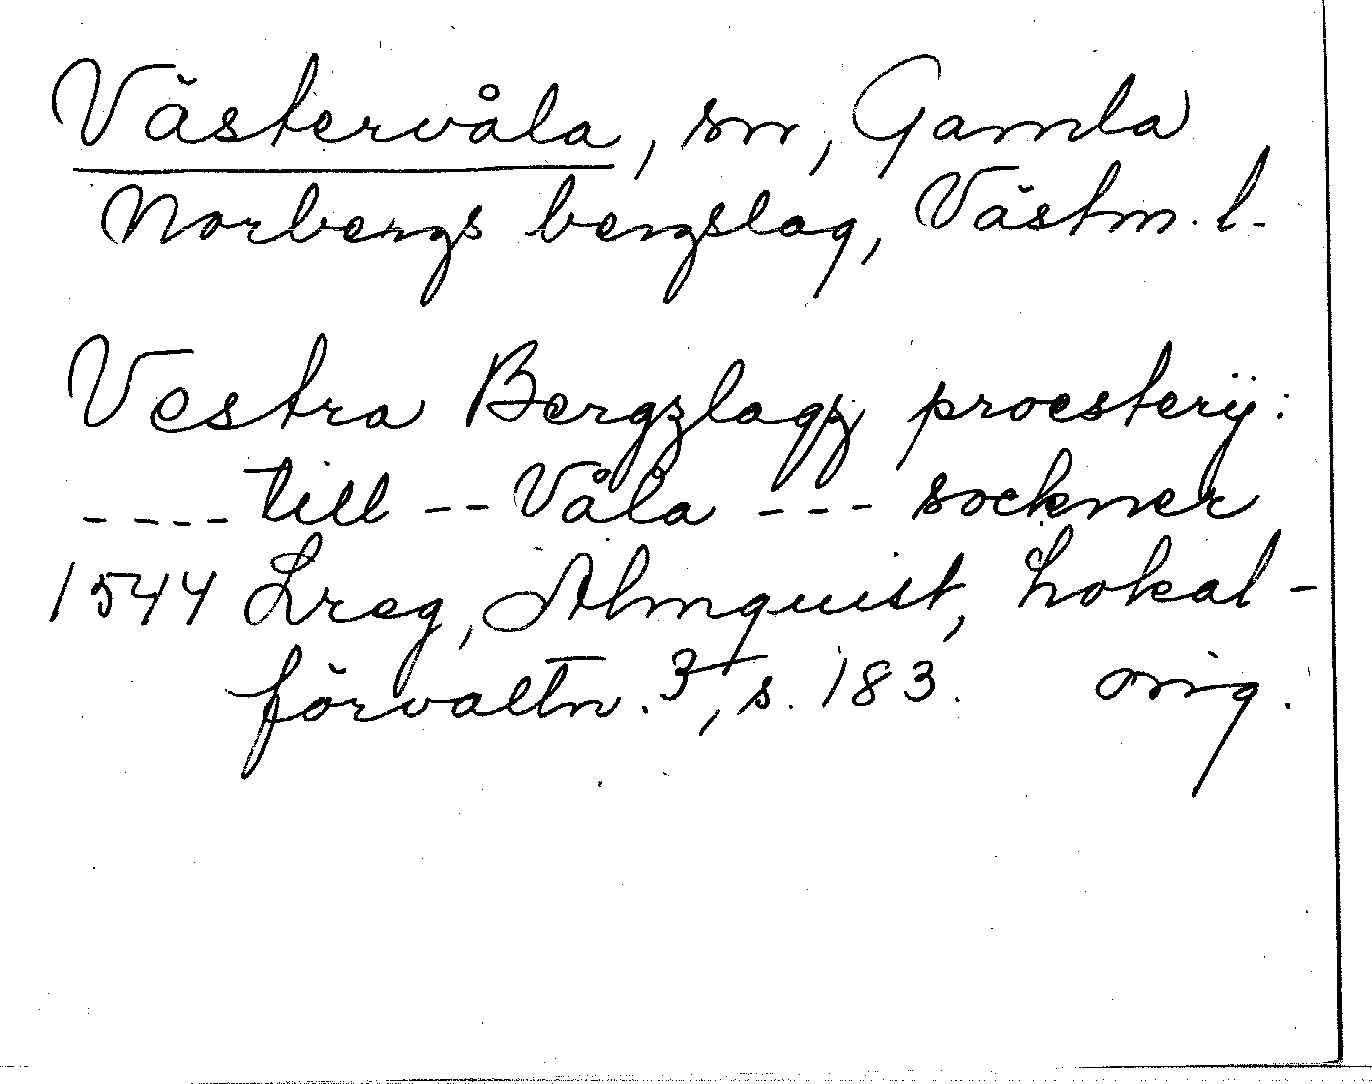 Västervåla, sn, Gamla
Norbergs bergslag, Västm. l.
Vestra Bergzlagz proesterÿ:
---- till -- Våla --- sockner
1544 Lreg, Almquist, Lokal-
förvaltn. 3, s. 183. orig.